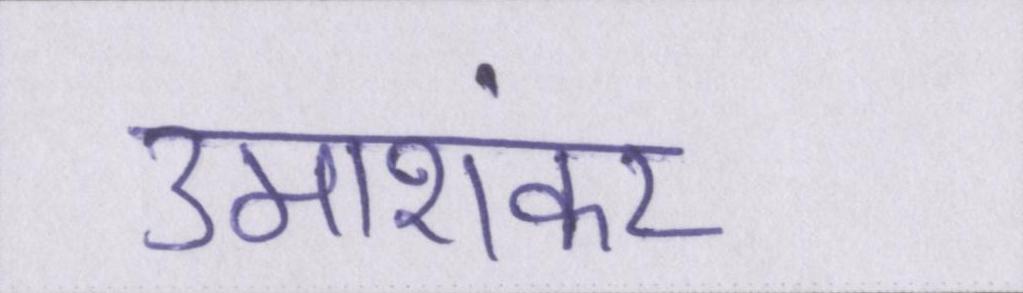 उमाशंकर